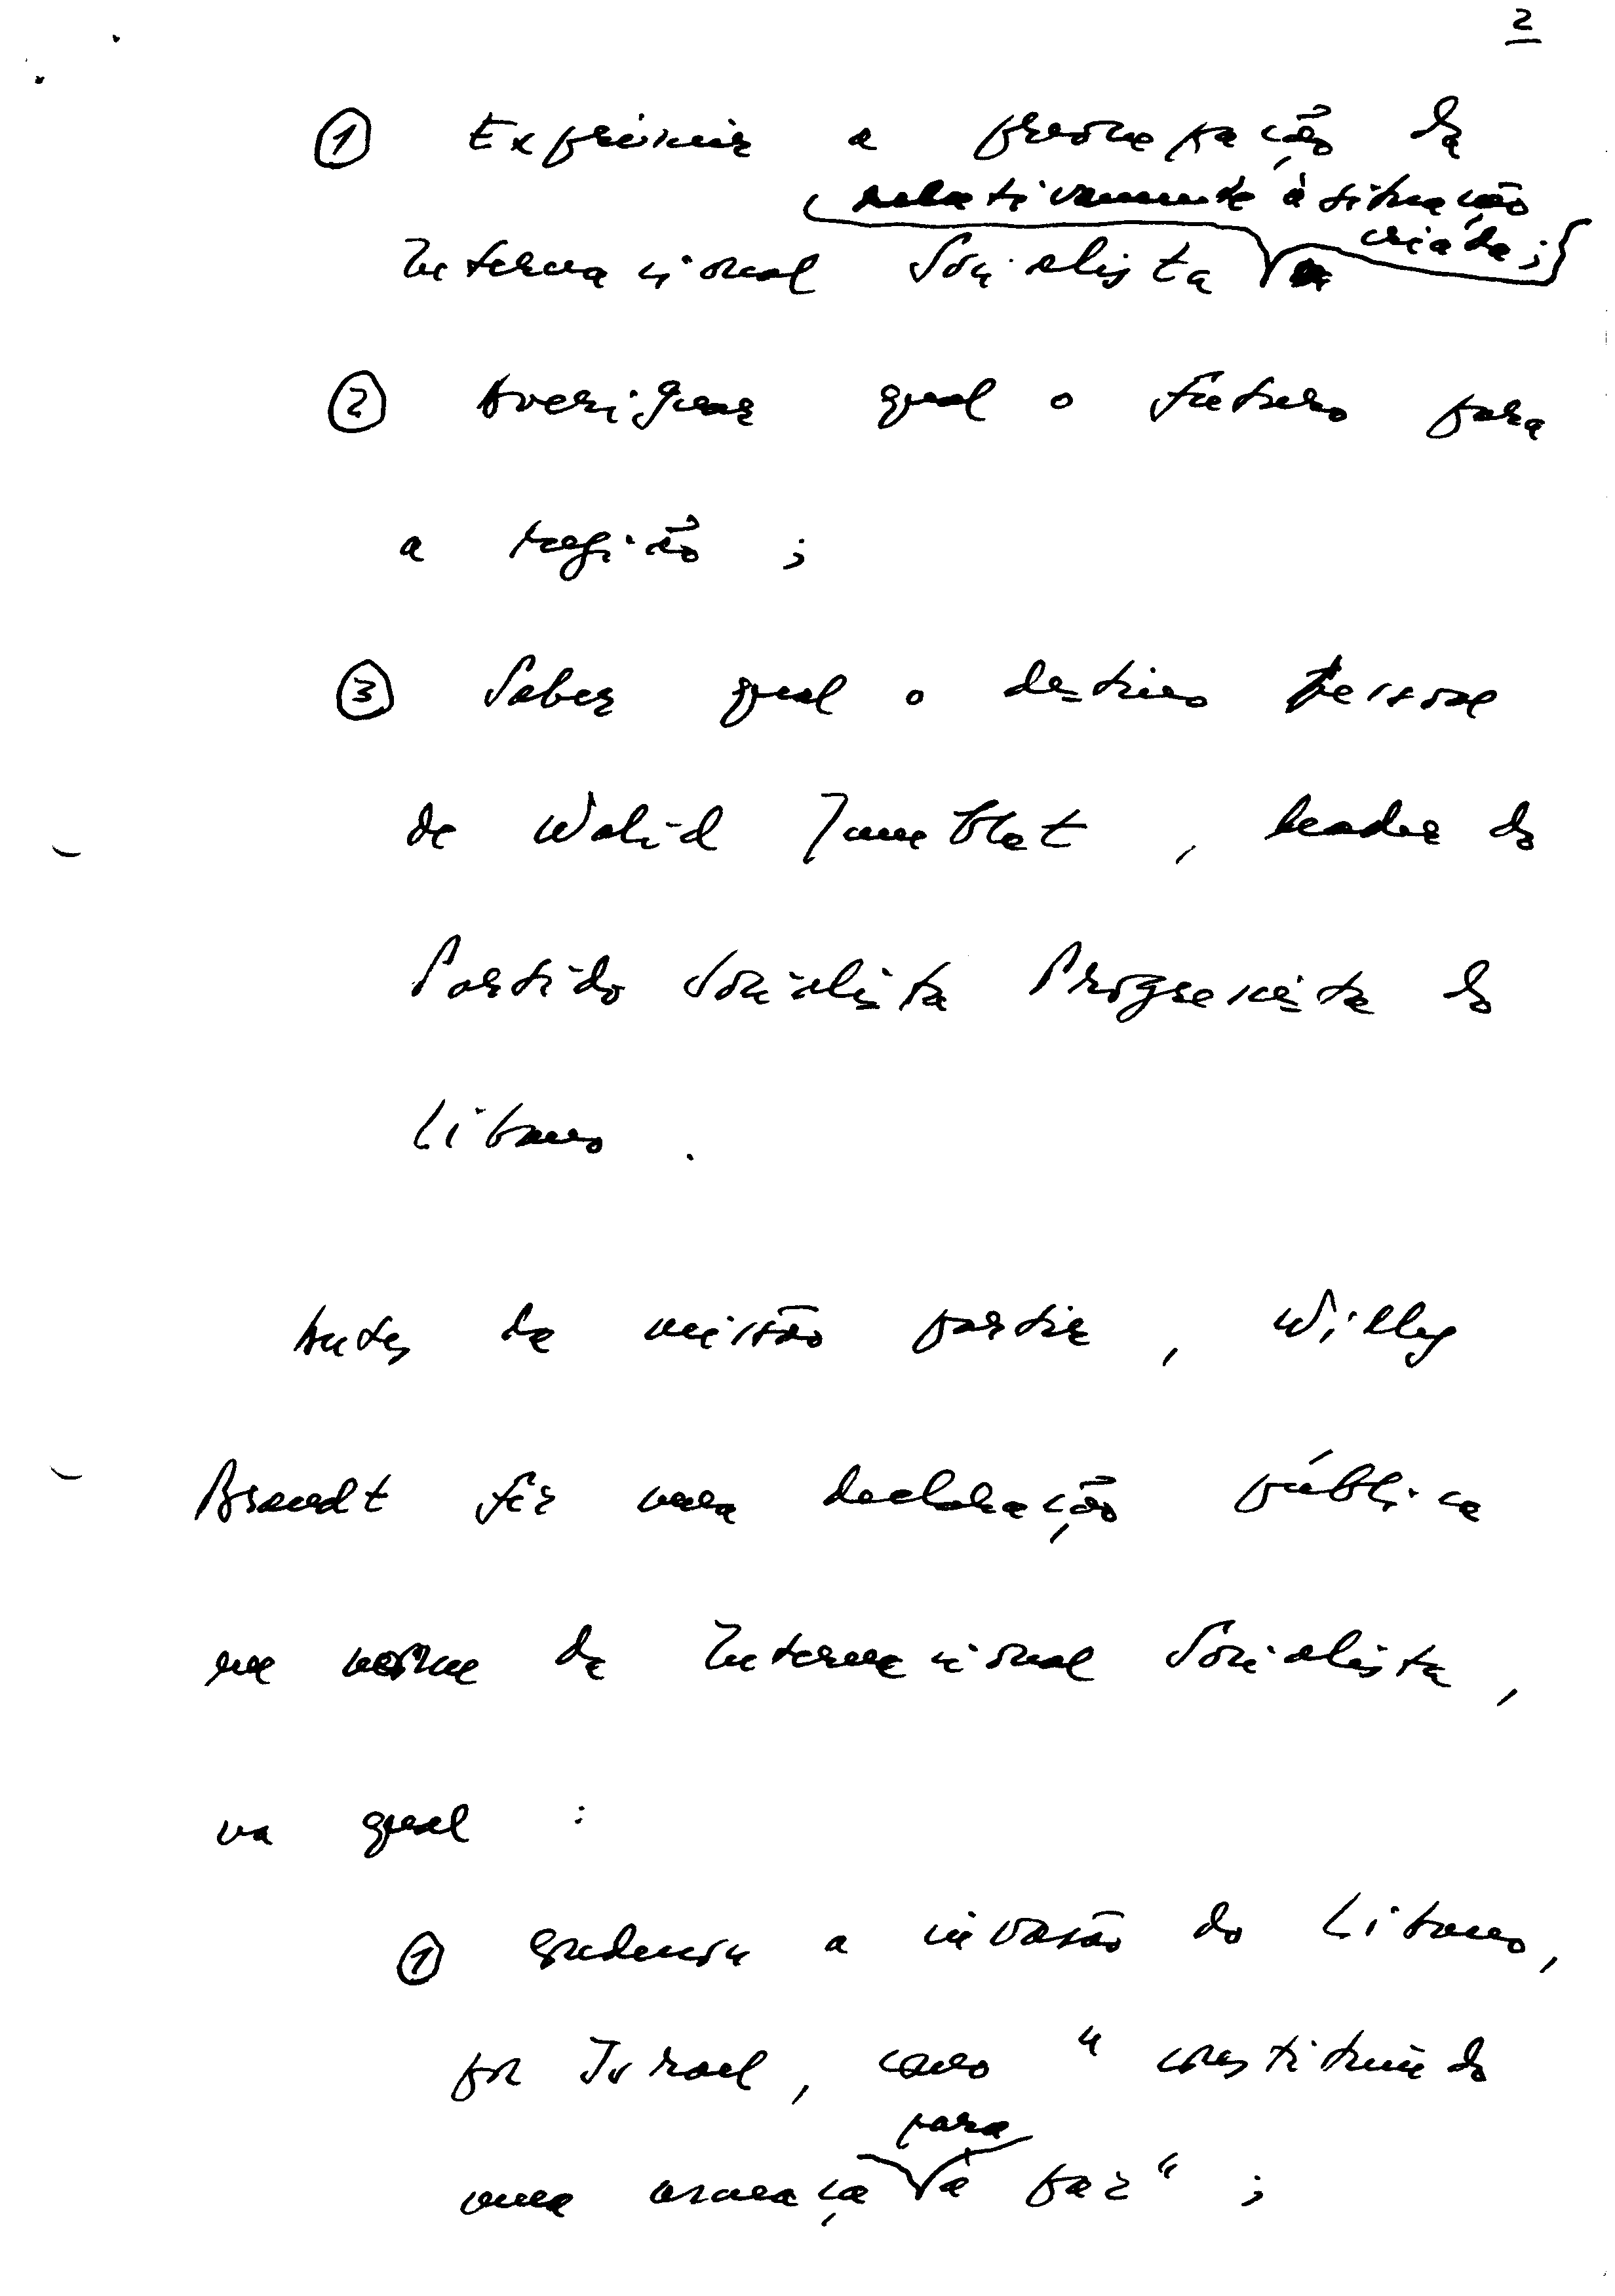 2
① Exprimir a preocupação da
relativamente à situação
criada;
Internacional Socialista
② Averiguar qual o futuro para
a região ;
③ Saber qual o destino pessoal
de Walid Jumblat , leader do
Partido Socialista Progressista do
Libano .
Antes da missão partir , Willy
Brandt fez uma declaração pública
em nome da Internacional Socialista ,
na qual :
① condenou a invasão do Libano ,
por Israel , como " constituindo
para
uma ameaça à paz " ;